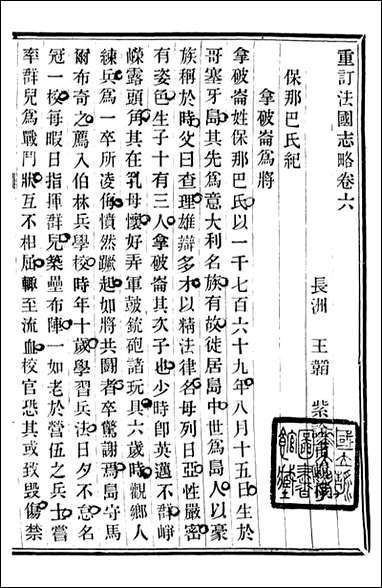 重訂法國志略卷六
長洲 王韜 紫
保那巴氏紀
拿破崙爲將
拿破崙姓保那巴氏以一千七百六十九年八月十五日生於
哥塞牙島其先為意大利名族有故徙居島中世為島人以豪
族稱於時父曰查理雄辯多才以精法律名母列日亞性嚴密
有姿色生子十有三人拿破崙其次子也少時卽英邁不群崢
嶸露頭角其在乳母懷好弄軍鼓銃砲諸玩具六歲時觀鄉人
練兵爲一卒所凌侮憤然蹶起如將共鬬者卒驚謝焉島守馬
爾布奇之薦入伯林兵學校時年十歲學習兵法日夕不怠名
冠一校每暇日指揮群兒築壘布陣一如老於營伍之兵士嘗
率群兒爲戰鬥狀互不相屈輒至流血校官恐其或致毀傷禁